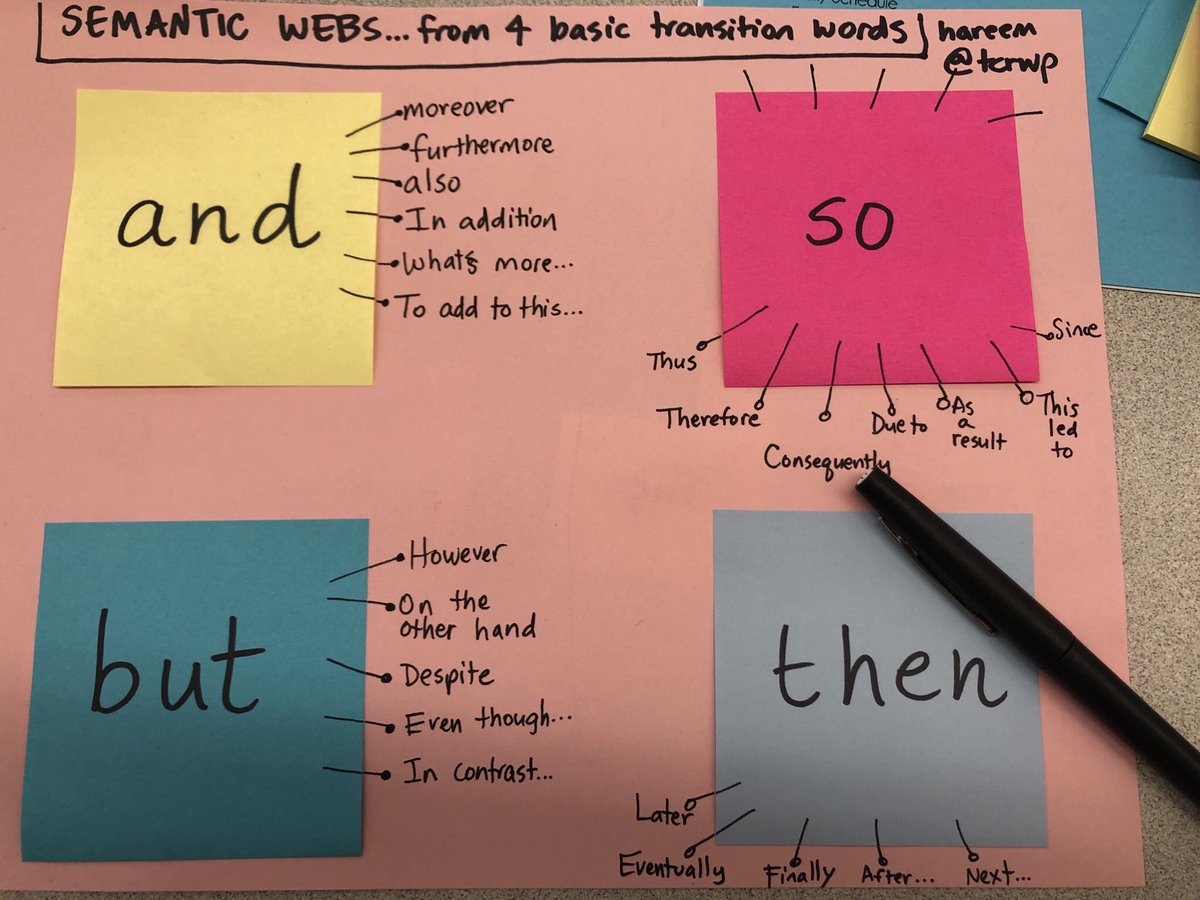 SEMANTIC WEBS... from 4 basic transition words
hareem
@tcrwp
and
moreover
furthermore
also
In addition
What's more...
To add to this...
so
Thus
Therefore
Consequently
Due to
As
a
result
This
led
to
Since
but
However
On the
other hand
Despite
Even though...
In contrast...
then
Later
Eventually
Finally
After...
Next...